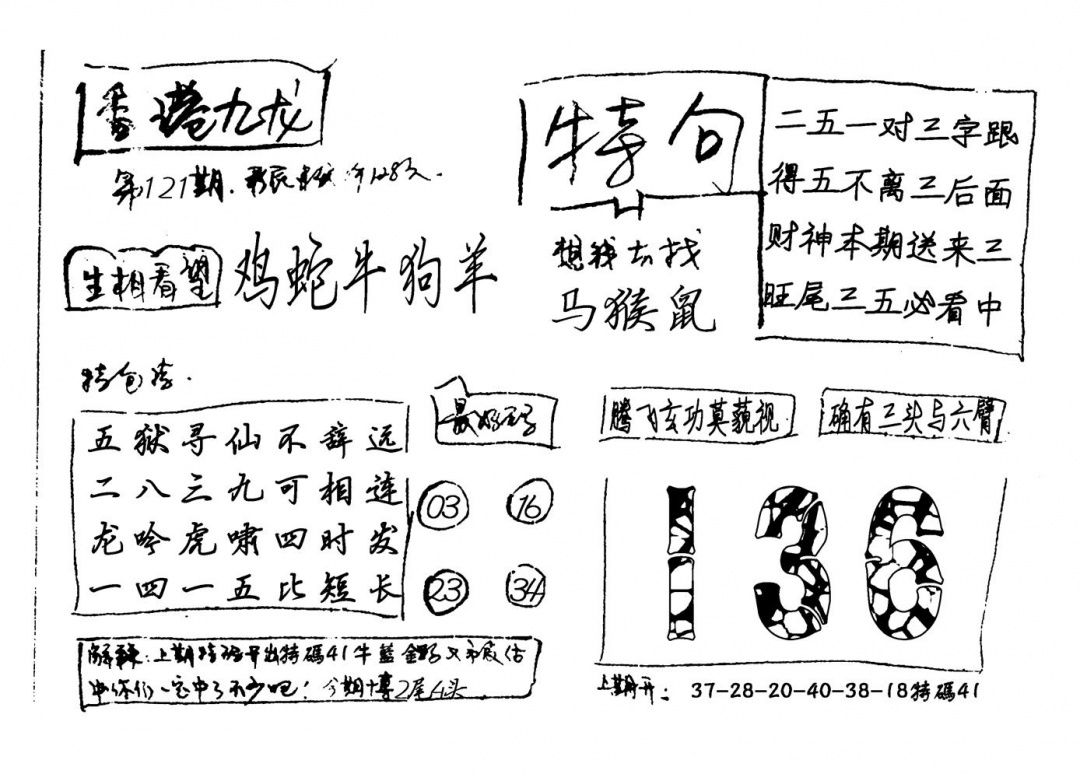 香港九龙
第121期
特句
二五一对三字跟
得五不离三后面
财神本期送来三
旺尾三五必看中
生相看望
鸡蛇牛狗羊
想我去找
马猴鼠
特包
五狱寻仙不辞远
二八三九可相连
龙吟虎啸四时发
一四一五比短长
最好
03 16
23 34
腾飞玄功莫藐视
确有三头与六臂
136
解释:上期特码开出特碼41牛蓝
中你们一定中了不少吧!今期博2尾4头
上期开:37-28-20-40-38-18特碼41